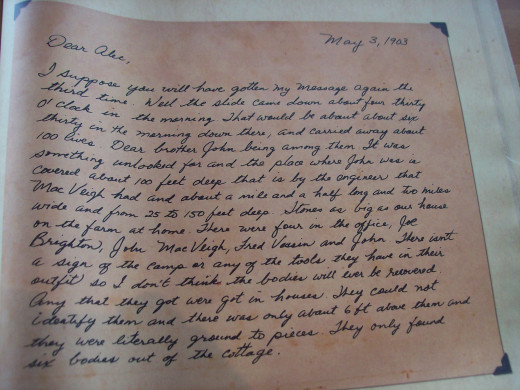 May 3, 1903
Dear Alec,
I suppose you will have gotten my message again the
third time. Well the slide came down about four thirty
O'clock in the morning. That would be about about six
thirty in the morning down there, and carried away about
100 lives. Dear brother John being among them. It was
something unlooked for and the place where John was is
covered about 100 feet deep that is by the engineer that
Mac Veigh had and about a mile and a half long and two miles
wide and from 25 to 150 feet deep. Stones as big as our house
on the farm at home. There were four in the office, Joe
Brighton, John Mac Veigh, Fred Vossin and John. There isn't
a sign of the camp or any of the tools they have in their
outfit so I don't think the bodies will ever be recovered.
Any that they got were got in houses. They could not
identify them and there was only about 6 ft above them and
they were literally ground to pieces. They only found
six bodies out of the cottage.